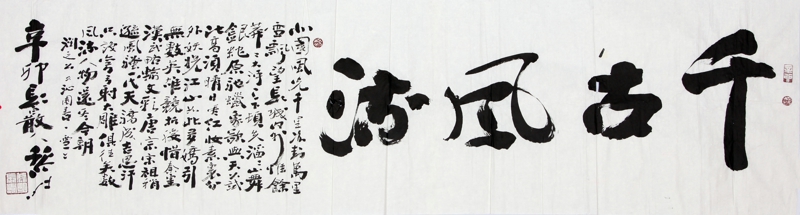 千古風流
北國風光千里冰封萬里
雪飄望長城內外惟餘
莽莽大河上下頓失滔滔山舞
銀蛇原馳蠟象欲與天公試
比高須晴日看紅妝素裹分
外妖嬈江山如此多嬌引
無數英雄競折腰惜秦皇
漢武略輸文彩唐宗宋祖稍
遜風騷一代天驕成吉思汗
只識彎弓射大雕俱往矣數
風流人物還看今朝
沁園春雪
辛卯